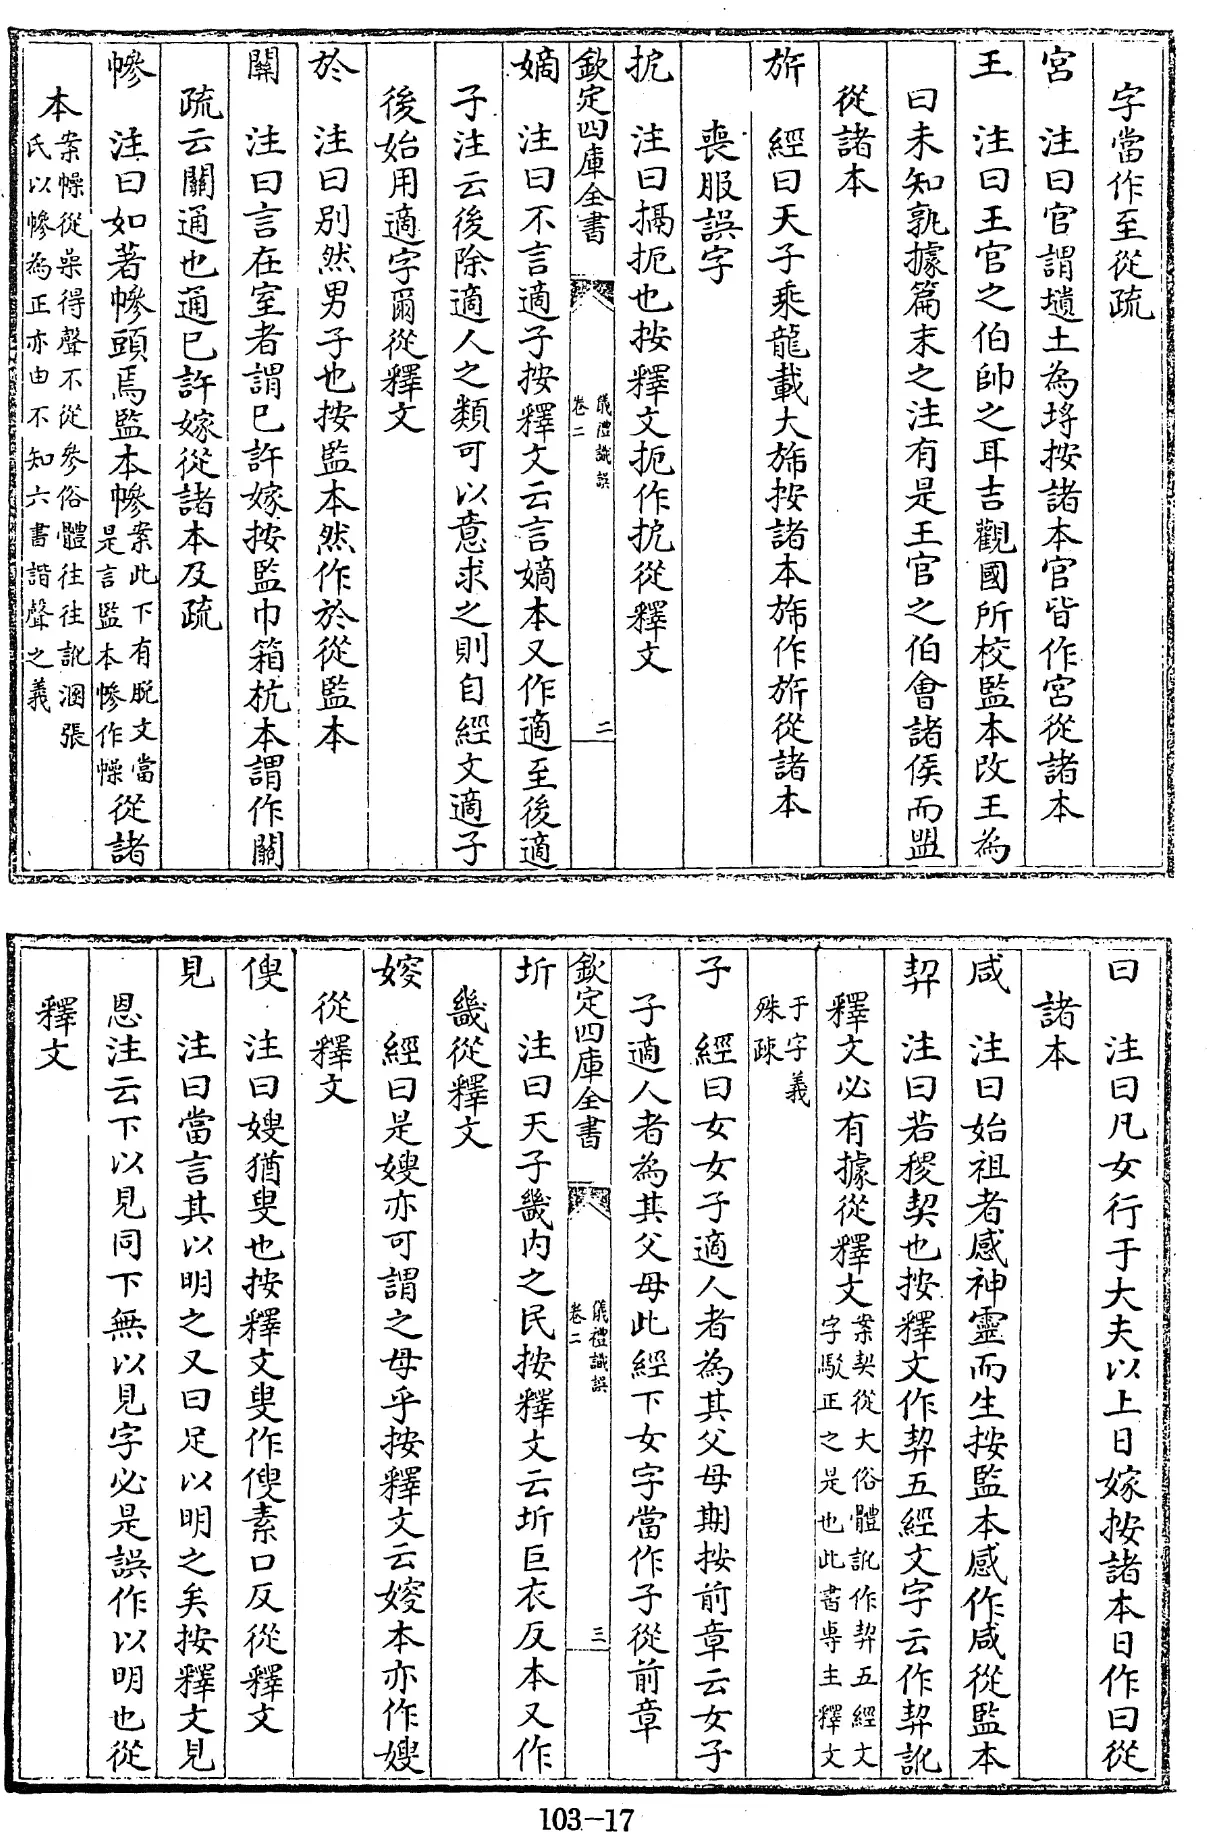 字當作至從疏
宮　注曰官謂壝土為埓按諸本官皆作宮從諸本
王　注曰王官之伯帥之耳吉觀國所校監本改王為
曰未知孰據篇末之注有是王官之伯會諸侯而盟
從諸本
旂　經曰天子乘龍載大斾按諸本斾作旂從諸本
喪服誤字
抳　注曰搹扼也按釋文扼作抳從釋文
欽定四庫全書
儀禮識誤
卷二
二
嫡　注曰不言適子按釋文云言嫡本又作適至後適
子注云後除適人之類可以意求之則自經文適子
後始用適字爾從釋文
於　注曰別然男子也按監本然作於從監本
關　注曰言在室者謂已許嫁按監巾箱杭本謂作關
疏云關通也通已許嫁從諸本及疏
幓　注曰如著幓頭焉監本幓案此下有脫文當
是言監本幓作幧從諸
本案幧從喿得聲不從參俗體往往訛溷張
氏以幓為正亦由不知六書諧聲之義
曰　注曰凡女行于大夫以上日嫁按諸本日作曰從
諸本
咸　注曰始祖者感神靈而生按監本感作咸從監本
㓶　注曰若稷契也按釋文作㓶五經文字云作㓶訛
釋文必有據從釋文案契從大俗體訛作㓶五經文
字駁正之是也此書專主釋文
于字義
殊疎
子　經曰女女子適人者為其父母期按前章云女子
子適人者為其父母此經下女字當作子從前章
欽定四庫全書
儀禮識誤
卷二
三
圻　注曰天子畿內之民按釋文云圻巨衣反本又作
畿從釋文
㛮　經曰是嫂亦可謂之母乎按釋文云㛮本亦作嫂
從釋文
傁　注曰嫂猶叟也按釋文叟作傁素口反從釋文
見　注曰當言其以明之又曰足以明之矣按釋文見
恩注云下以見同下無以見字必是誤作以明也從
釋文
103-17